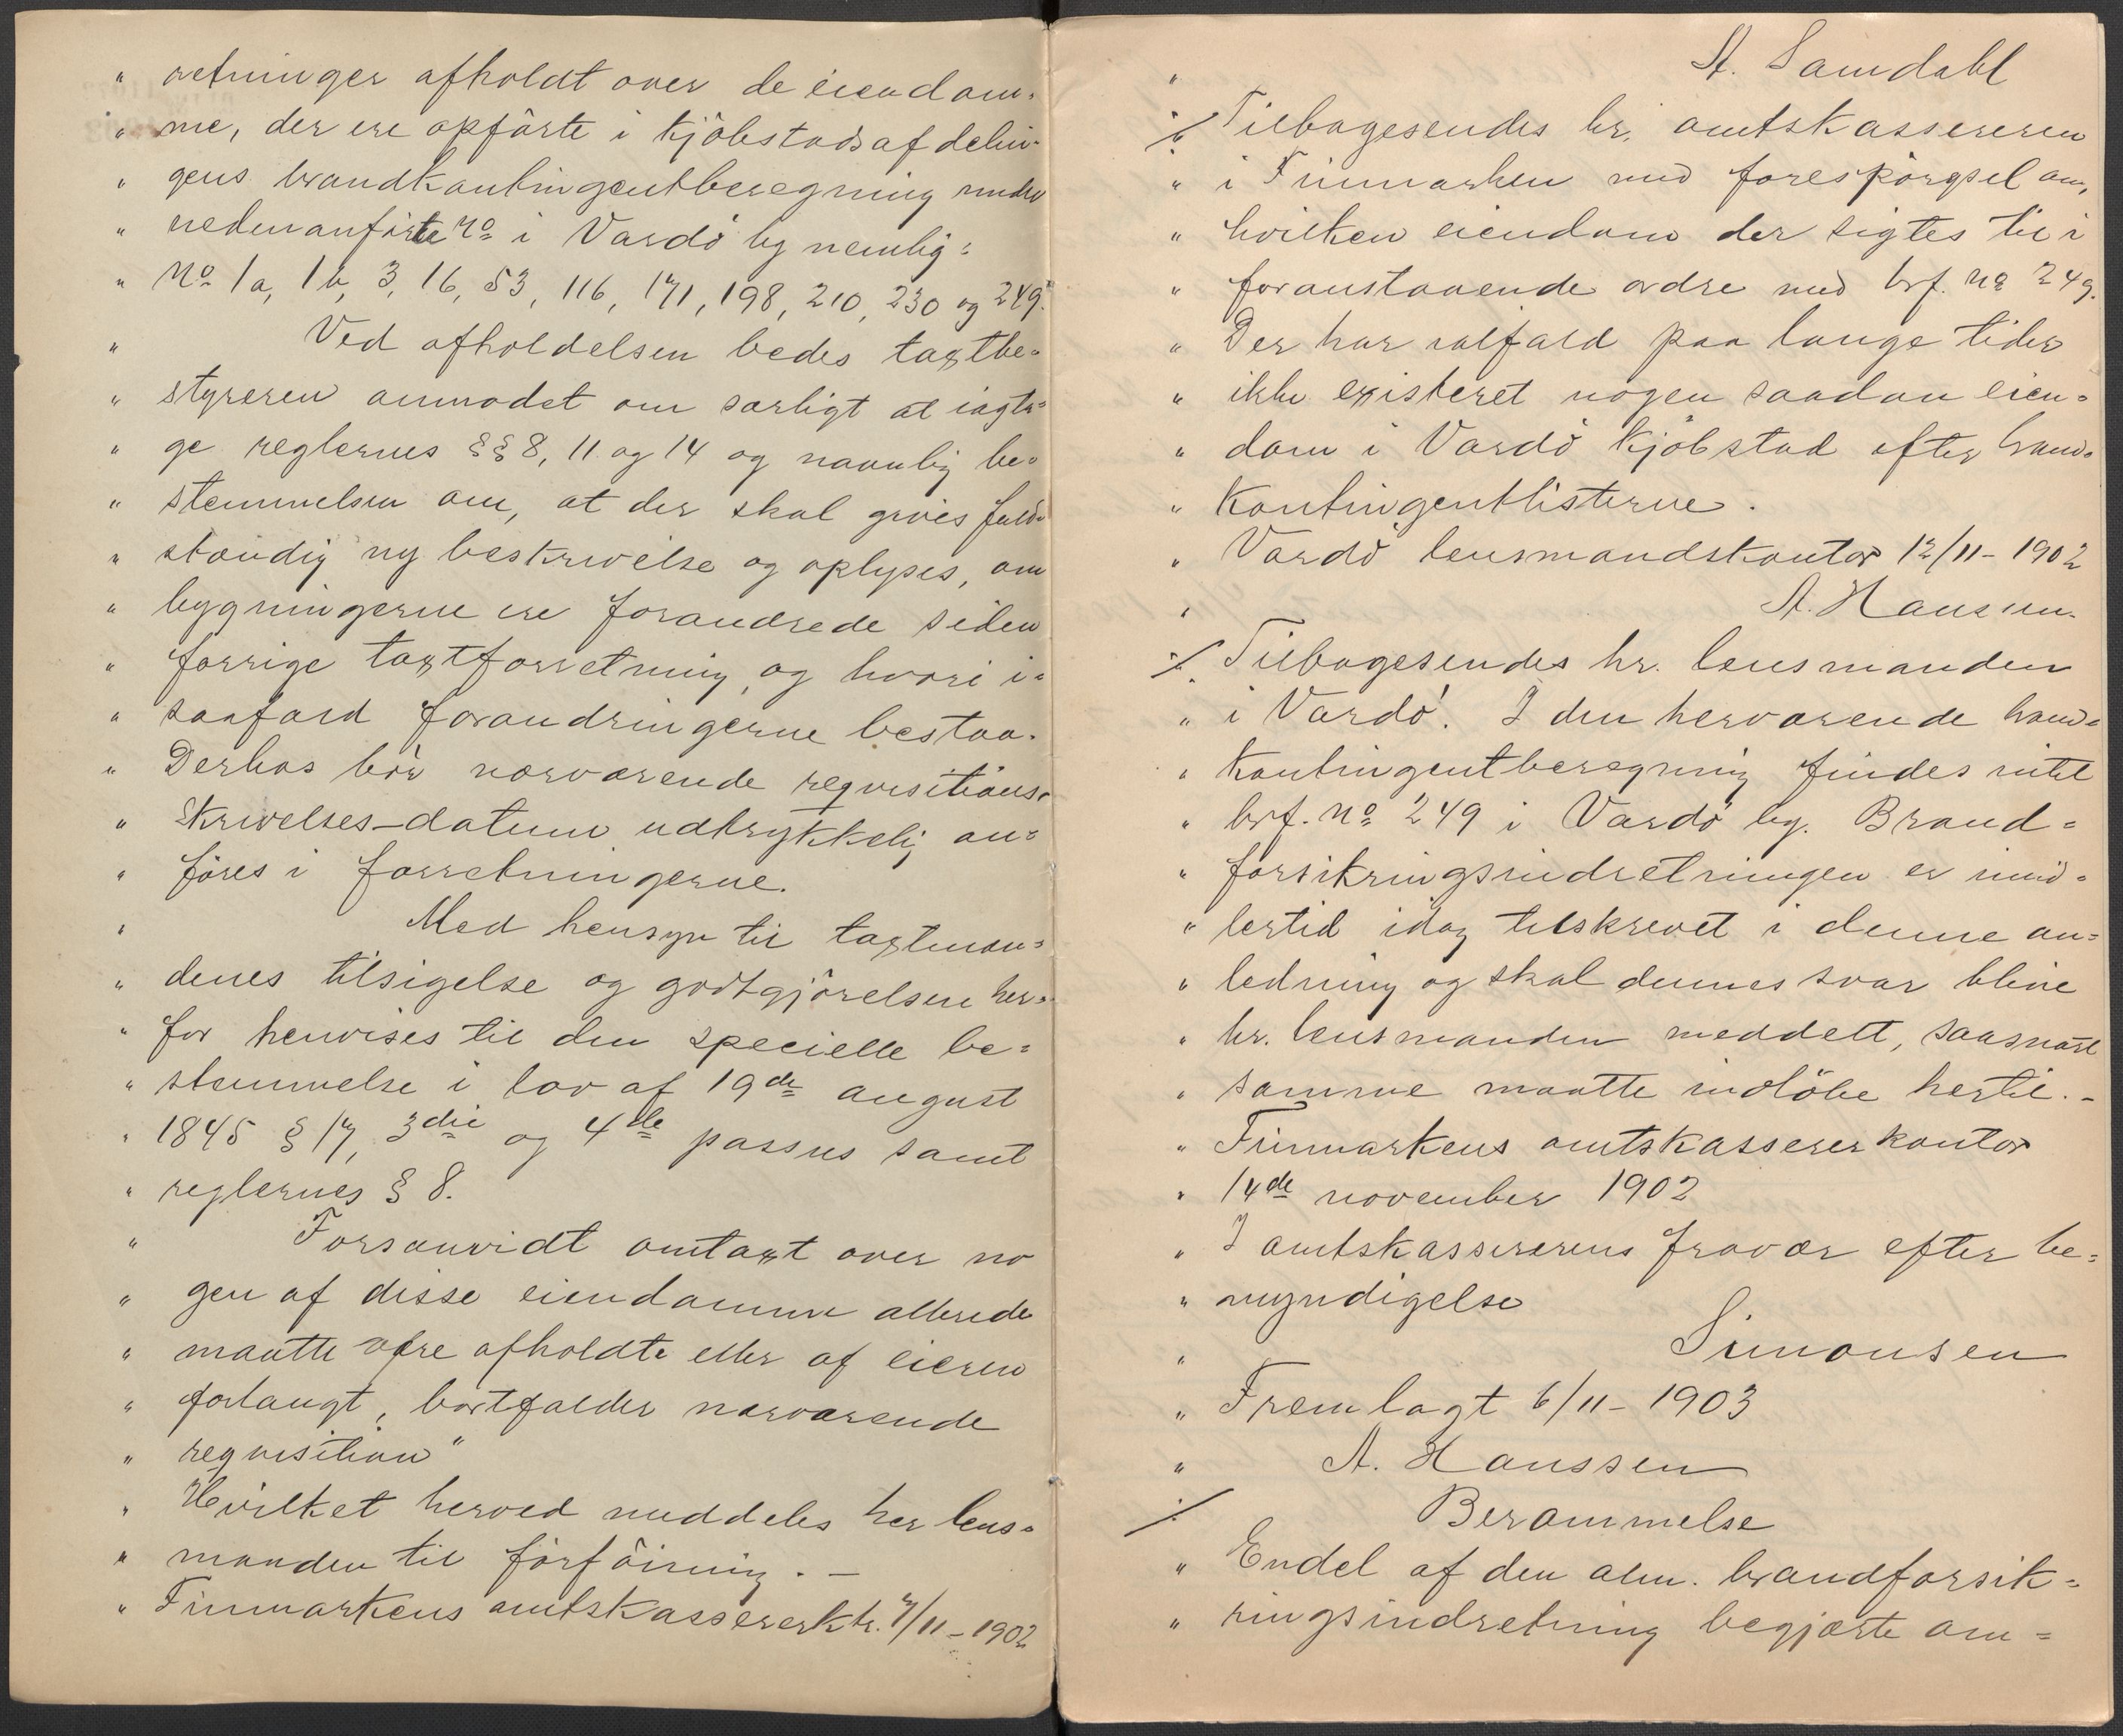 " retninger afholdt over de eiendom-
" me, der ere opførte i kjøbstadsafdelin-
" gens brandkontingentberegning under
" nedenanførte No i Vardø by nemlig:
" No 1a, 1b, 3, 16, 53, 116, 171, 198, 210, 230 og 249."
" Ved afholdelsen bedes taxtbe-
" styreren anmodet om særligt at iagta-
" ge reglernes §§ 8, 11 og 14 og navnlig be-
" stemmelsen om, at der skal gives fuld-
" stændig ny beskrivelse og oplyses, om
" bygningerne ere forandrede siden
" forrige taxtforretning, og hvori i-
" saafald forandringerne bestaa.
" Derhos bør nærværende reqvisitions-
" skrivelses-datum udtrykkelig an-
" føres i forretningerne.
" Med hensyn til taxtmæn-
" denes tilsigelse og godtgjørelsen her-
" for henvises til den specielle be-
" stemmelse i lov af 19de august
" 1845 § 17, 3die og 4de passus samt
" reglernes § 8.
" Forsaavidt omtaxt over no
" gen af disse eiendomme allerede
" maatte være afholdte eller af eieren
" forlangt, bortfalder nærværende
" reqvisition"
" Hvilket herved meddeles her lens-
" manden til forføining. —
" Finmarkens amtskassererktr. 7/11 - 1902
" A. Samdahl
·/. Tilbagesendes hr. amtskassereren
" i Finmarken med forespørgsel om,
" hvilken eiendom der sigtes til i
" foranstaaende ordre med brf. No 249.
" Der har ialfald paa lange tider
" ikke existeret nogen saadan eien-
" dom i Vardø kjøbstad efter brand-
" kontingentlisterne.
" Vardø lensmandskontor 12/11 - 1902
" A. Hansen.
·/. Tilbagesendes hr. lensmanden
" i Vardø. I den herværende brand-
" kontingentberegning findes intet
" brf. No 249 i Vardø by. Brand-
" forsikringsindretningen er imid-
" lertid idag tilskrevet i denne an-
" ledning og skal dennes svar blive
" hr. lensmanden meddelt, saasnart
" samme maatte indløbe hertil. -
" Finmarkens amtskassererkontor
" 14de november 1902
" I amtskassererens fravær efter be-
" myndigelse
" Simonsen
" Fremlagt 6/11 - 1903
" A. Hanssen
·/. Berammelse
" Endel af den alm. brandforsik-
" ringsindretning begjærte om-